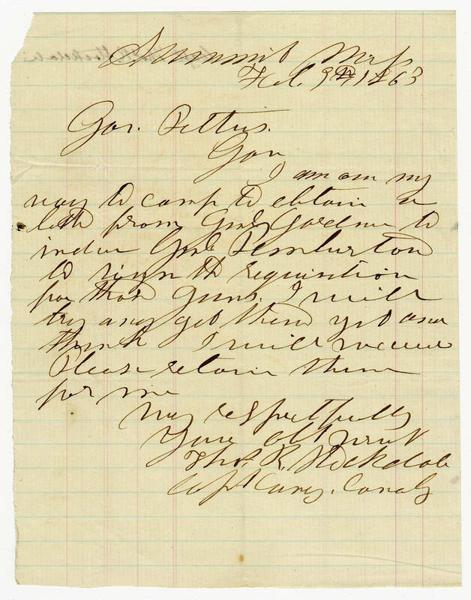 Summit Miss
Feb. 9th 1863
Gov. Pettus.
Gov
I am on my
way to camp to obtain a
letter from Genl Gardner to
induce Genl Pemberton
to sign the requisition
for those guns. I will
try and get them yet and
think I will succeed
Please retain them
for me
Very respectfully
Your Obt Servt
Thos. R. Stockdale
Capt Cavy.